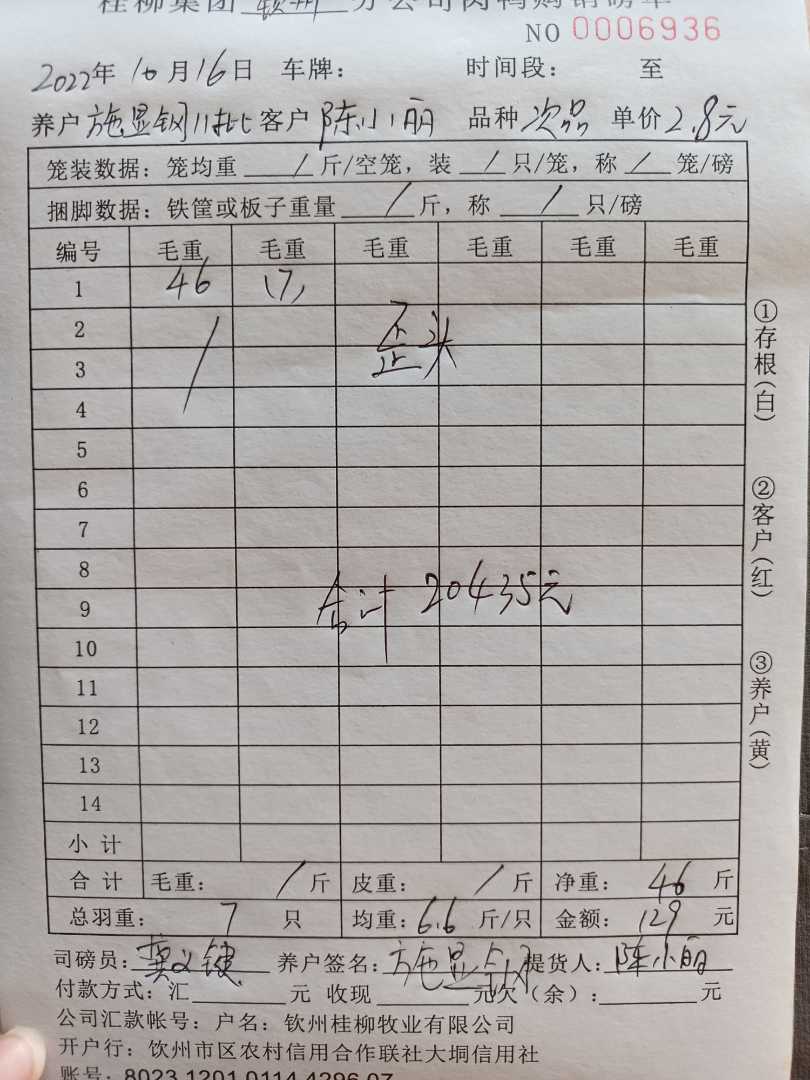 桂柳集团 钦州 分公司肉鸭购销磅单
NO 0006936
2022年 10月16日 车牌： 时间段： 至
养户 施显钢11批 客户 陈小丽 品种 次品 单价 2.8元
笼装数据：笼均重 / 斤/空笼，装 / 只/笼，称 / 笼/磅
捆脚数据：铁筐或板子重量 / 斤，称 / 只/磅
编号 毛重 毛重 毛重 毛重 毛重 毛重
1 46 (7)
2 / 歪头
3
4
5
6
7
8
9 合计 20435元
10
11
12
13
14
小计
合计 毛重： / 斤 皮重： / 斤 净重： 46 斤
总羽重： 7 只 均重：6.6 斤/只 金额： 129 元
司磅员： 养户签名：施显钢 提货人：陈小丽
付款方式：汇 元 收现 元欠（余）： 元
公司汇款帐号：户名：钦州桂柳牧业有限公司
开户行：饮州市区农村信用合作联社大垌信用社
账号：8023 1201 0114 4296 07
①存根(白)
②客户(红)
③养户(黄)